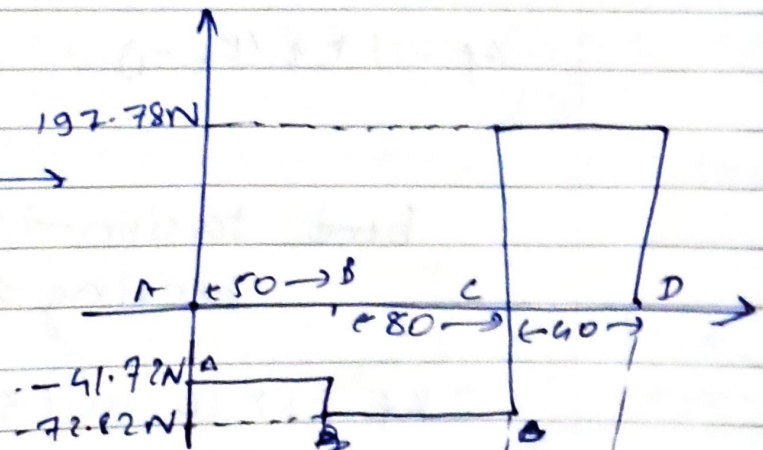 197.78N
A ←50→ B C D
←80→ ←40→
-41.72N A
-72.82N B